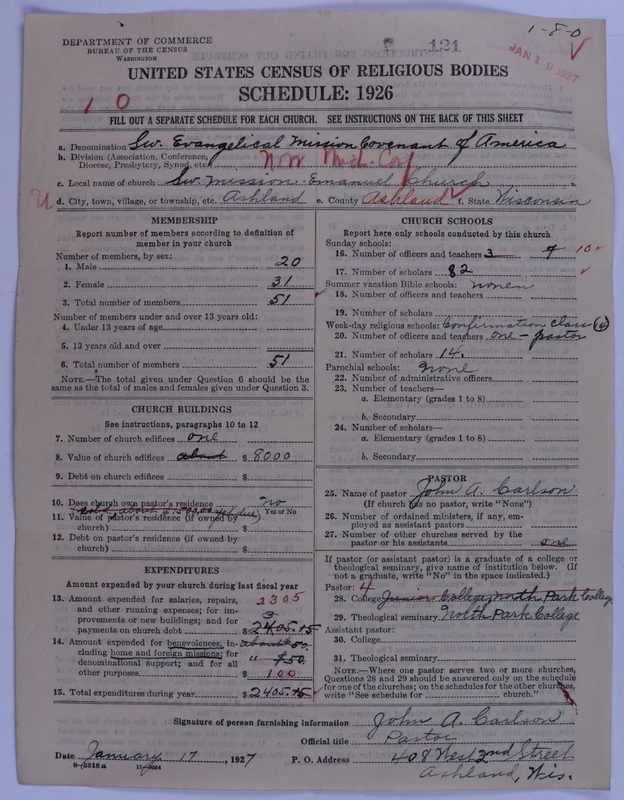 1-8-0
DEPARTMENT OF COMMERCE
BUREAU OF THE CENSUS
WASHINGTON
121
JAN 19 1927
UNITED STATES CENSUS OF RELIGIOUS BODIES
SCHEDULE: 1926
1 0
FILL OUT A SEPARATE SCHEDULE FOR EACH CHURCH. SEE INSTRUCTIONS ON THE BACK OF THIS SHEET
a. Denomination Sw. Evangelical Mission Covenant of America
b. Division (Association, Conference,
Diocese, Presbytery, Synod, etc.)
c. Local name of church Sw. Mission. Emanuel Church
d. City, town, village, or township, etc. Ashland e. County Ashland f. State Wisconsin
MEMBERSHIP
Report number of members according to definition of
member in your church
Number of members, by sex:
1. Male 20
2. Female 31
3. Total number of members 51
Number of members under and over 13 years old:
4. Under 13 years of age
5. 13 years old and over
6. Total number of members 51
NOTE.—The total given under Question 6 should be the
same as the total of males and females given under Question 3.
CHURCH BUILDINGS
See instructions, paragraphs 10 to 12
7. Number of church edifices one
8. Value of church edifices about $ 8000
9. Debt on church edifices $
10. Does church own pastor's residence no
Yes or No
11. Value of pastor's residence (if owned by
church) $
12. Debt on pastor's residence (if owned by
church) $
EXPENDITURES
Amount expended by your church during last fiscal year
13. Amount expended for salaries, repairs, 2305
and other running expenses; for im-
provements or new buildings; and for
payments on church debt $ 2405.15
14. Amount expended for benevolences, in- about 50.
cluding home and foreign missions; for
denominational support; and for all " $50.
other purposes $ 100
15. Total expenditures during year $ 2405.15
CHURCH SCHOOLS
Report here only schools conducted by this church
Sunday schools:
16. Number of officers and teachers 3 7 10
17. Number of scholars 82
Summer vacation Bible schools: none
18. Number of officers and teachers
19. Number of scholars
Week-day religious schools: Confirmation class
20. Number of officers and teachers one - pastor
21. Number of scholars 14.
Parochial schools: none
22. Number of administrative officers
23. Number of teachers—
a. Elementary (grades 1 to 8)
b. Secondary
24. Number of scholars—
a. Elementary (grades 1 to 8)
b. Secondary
PASTOR
25. Name of pastor John A. Carlson
(If church has no pastor, write "None")
26. Number of ordained ministers, if any, em-
ployed as assistant pastors
27. Number of other churches served by the
pastor or his assistants one
If pastor (or assistant pastor) is a graduate of a college or
theological seminary, give name of institution below. (If
not a graduate, write "No" in the space indicated.)
Pastor: 4
28. College Junior College, North Park College
29. Theological seminary North Park College
Assistant pastor:
30. College
31. Theological seminary
NOTE.—Where one pastor serves two or more churches,
Questions 28 and 29 should be answered only on the schedule
for one of the churches; on the schedules for the other churches,
write "See schedule for church."
Signature of person furnishing information John A. Carlson
Official title Pastor
Date January 17, 1927 P. O. Address 408 West 2nd Street
Ashland, Wis.